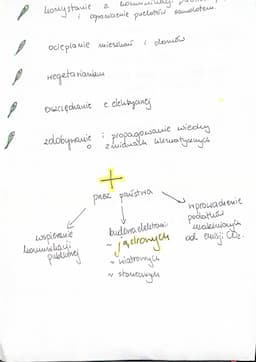 korzystanie z komunikacji
i ograniczenie przelotów samolotem.
ocieplanie mieszkań i domów
wegetarianizm
oszczędzanie e. elektrycznej
zdobywanie i propagowanie wiedzy
o zmianach klimatycznych
+
przez państwa
wspieranie
komunikacji
publicznej
budowa elektrowni
~ jądrowych
~ wiatrowych
~ słonecznych
wprowadzenie
podatków
uzależnionych
od emisji CO₂.